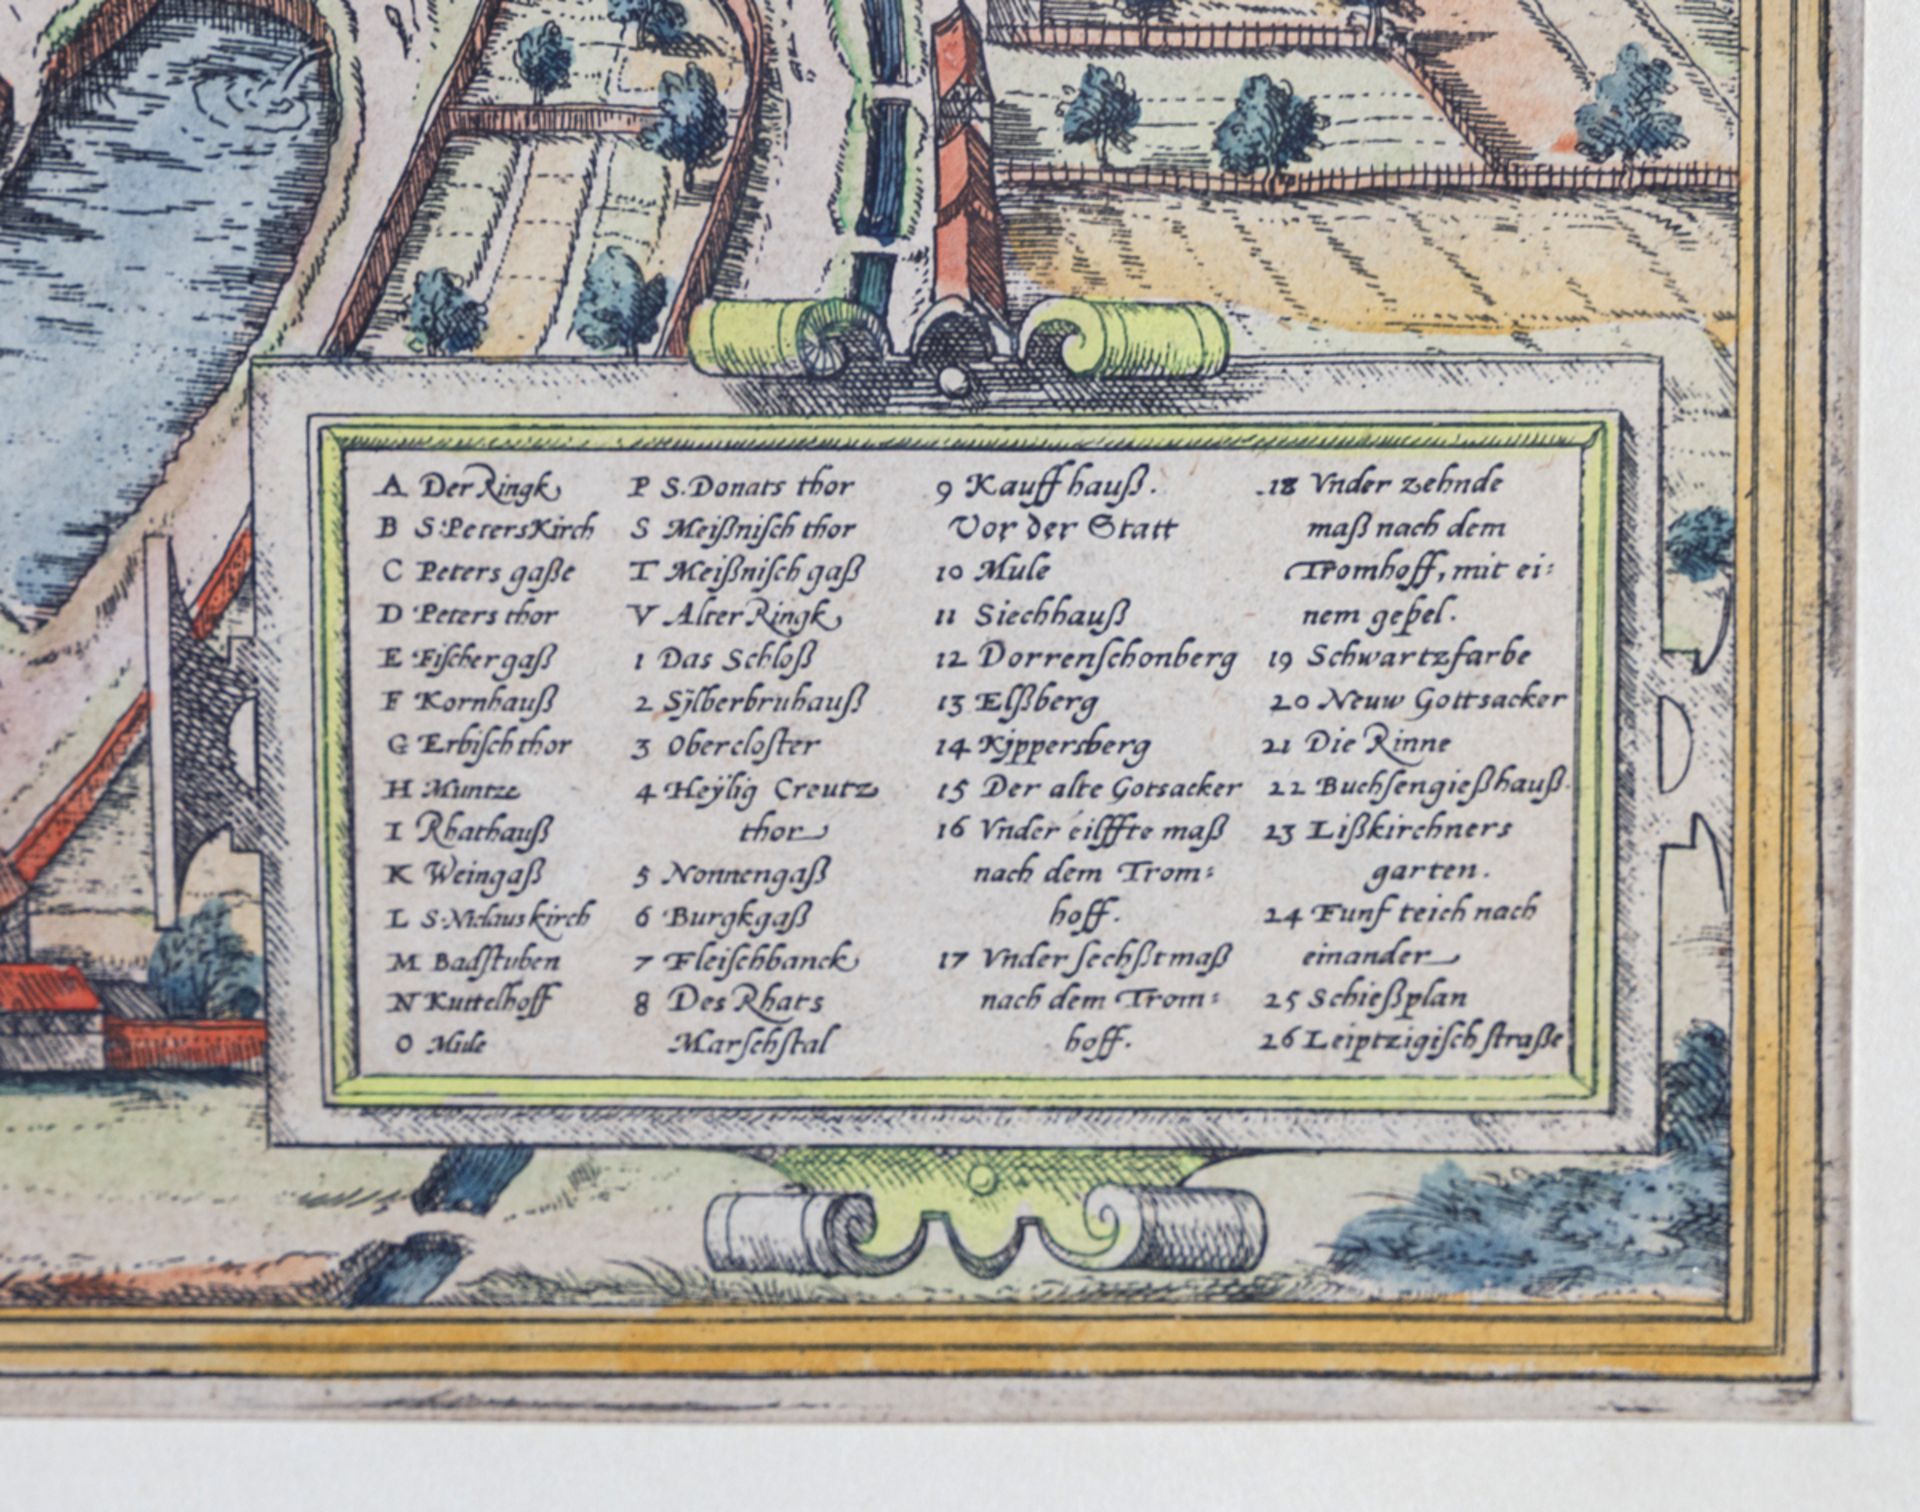 A Der Ringk
B S. Peters Kirch
C Peters gaße
D Peters thor
E Fischergaß
F Kornhauß
G Erbisch thor
H Muntze
I Rhathauß
K Weingaß
L S. Niclaus kirch
M Badstuben
N Kuttelhoff
O Mule
P S. Donats thor
S Meißnisch thor
T Meißnisch gaß
V Alter Ringk
1 Das Schloß
2 Sÿlberbruhauß
3 Obercloster
4 Heÿlig Creutz
thor
5 Nonnengaß
6 Burgkgaß
7 Fleischbanck
8 Des Rhats
Marschstal
9 Kauff hauß.
Vor der Statt
10 Mule
11 Siechhauß
12 Dorrenschonberg
13 Elßberg
14 Kÿppersberg
15 Der alte Gotsacker
16 Vnder eilffte maß
nach dem Trom:
hoff.
17 Vnder sechßt maß
nach dem Trom:
hoff.
18 Vnder zehnde
maß nach dem
Tromhoff, mit ei:
nem gepel.
19 Schwartzfarbe
20 Neuw Gottsacker
21 Die Rinne
22 Buchsengießhauß.
23 Lißkirchners
garten.
24 Funf teich nach
einander
25 Schießplan
26 Leiptzigisch straße